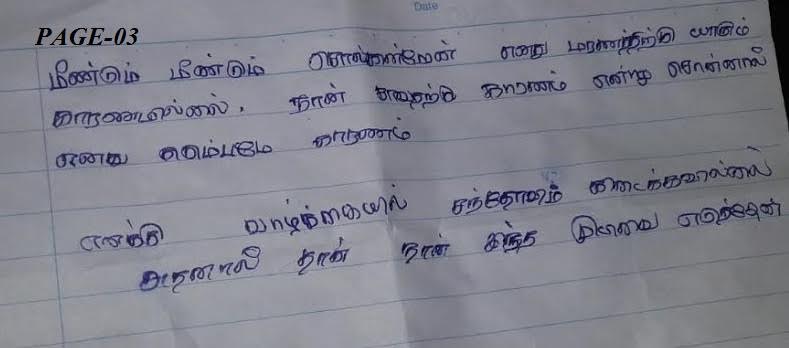 Date
PAGE-03
மீண்டும் மீண்டும் சொல்கின்றேன் எனது மரணத்திற்கு யாரும்
காரணமில்லை. நான் எதற்கு காரணம் என்று சொன்னால்
எனது குடும்பமே காரணம்
எனக்கு வாழ்க்கையில் சந்தோஷம் கிடைக்கவில்லை
அதனால் தான் நான் இந்த முடிவை எடுத்தேன்